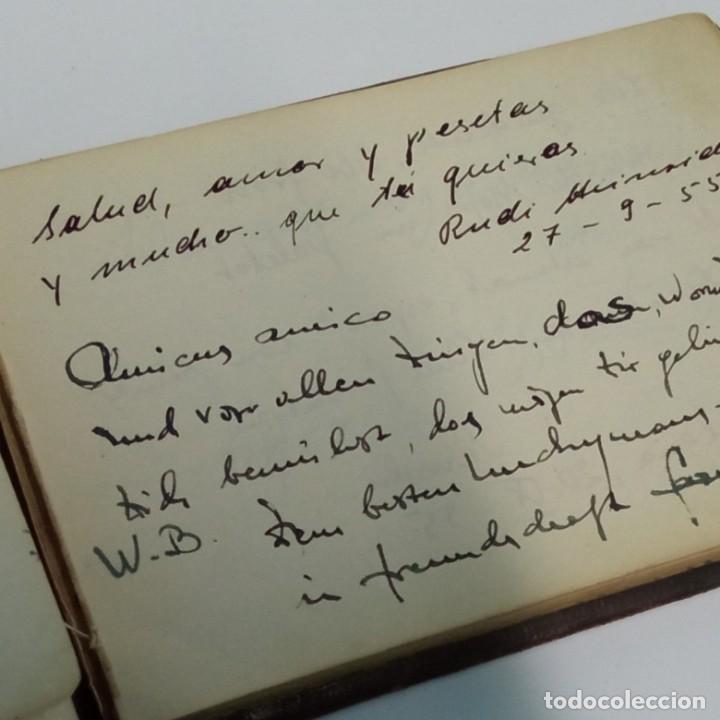 Salud, amor y pesetas
y mucho.. que tú quieras
Rudi
27-9-55
Amicus amico
und vor allen Dingen, das,
Dich bemühst, das mögen Dir
W.B. Dem besten
in Freundschaft
todocoleccion